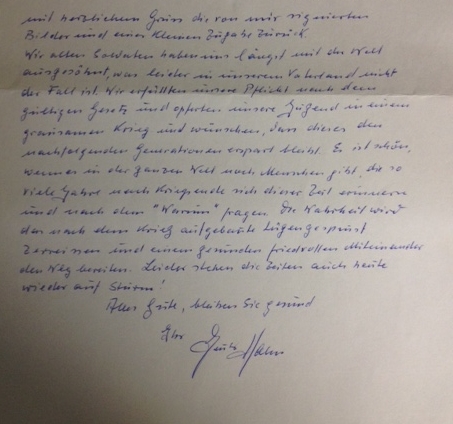 mit herzlichem Gruss die von mir signierten
Bilder und eine kleine Zugabe zurück.
Wir alten Soldaten haben uns längst mit der Welt
ausgesöhnt, was leider in unserem Vaterland nicht
der Fall ist. Wir erfüllten unsere Pflicht nach dem
gültigen Gesetz und opferten unsere Jugend in einem
grausamen Krieg und wünschen, dass dieses den
nachfolgenden Generationen erspart bleibt. Es ist schön,
wenn es in der ganzen Welt noch Menschen gibt, die so
viele Jahre nach Kriegsende sich dieser Zeit erinnern
und nach dem "Warum" fragen. Die Wahrheit wird
das nach dem Krieg aufgebaute Lügengespinst
zerreissen und einem gesunden friedvollen Miteinander
den Weg bereiten. Leider stehen die Zeiten auch heute
wieder auf Sturm!
Alles Gute, bleiben Sie gesund
Ihr